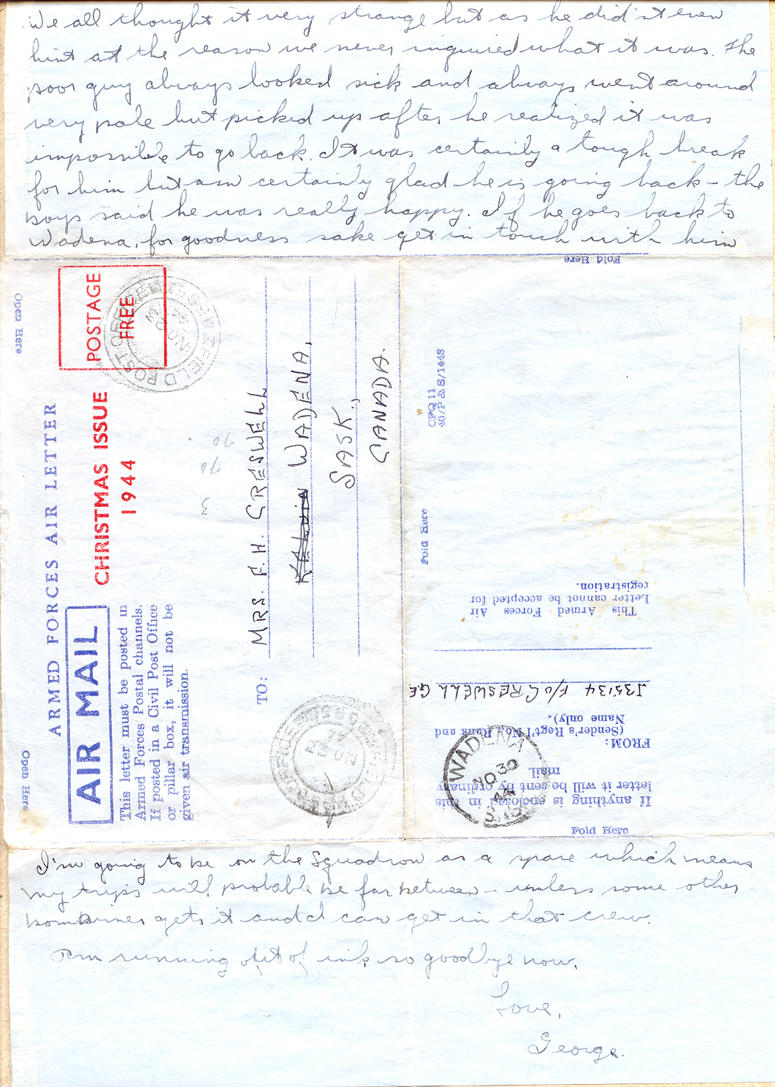 We all thought it very strange but as he did'nt even
hint at the reason we never inquired what it was. The
poor guy always looked sick and always went around
very pale but picked up after he realized it was
impossible to go back. It was certainly a tough break
for him but am certainly glad he is going back - the
boys said he was really happy. If he goes back to
Wadena, for goodness sake get in touch with him
Open Here
Open Here
ARMED FORCES AIR LETTER
AIR MAIL
CHRISTMAS ISSUE
1944
POSTAGE
FREE
This letter must be posted in
Armed Forces Postal channels.
If posted in a Civil Post Office
or pillar box, it will not be
given air transmission.
3 70 70
FIELD POST OFFICE
NO 23
44
TO: MRS. F. H. CRESWELL
WADENA,
SASK.,
CANADA.
FIELD POST OFFICE
NO 22
Fold Here
CPQ 11
60/P & S/1448
Fold Here
This Armed Forces Air
Letter cannot be accepted for
registration.
J35134 F/O CRESWELL GE
(Sender's Reg't'l No., Rank and
Name only).
FROM:
If anything is enclosed in this
letter it will be sent by ordinary
mail.
WADENA
NO 30
44
SASK
Fold Here
I'm going to be on the Squadron as a spare which means
my trips will probable be far between - unless some other
gets it and I can get in that crew.
Am running out of ink so goodbye now.
Love,
George.